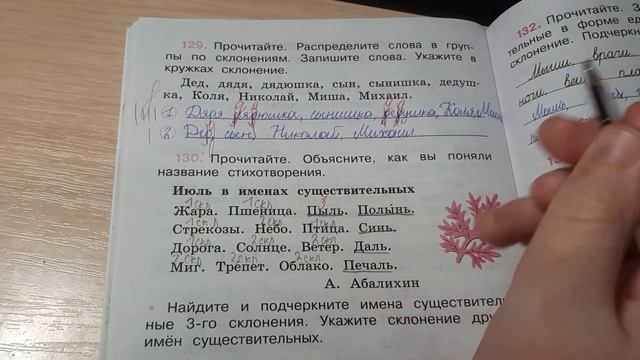 129. Прочитайте. Распределите слова в груп-
пы по склонениям. Запишите слова. Укажите в
кружках склонение.
Дед, дядя, дядюшка, сын, сынишка, дедуш-
ка, Коля, Николай, Миша, Михаил.
1 Дядя, дядюшка, сынишка, Коля, Миша
2 Дед, сын, Николай, Михаил
130. Прочитайте. Объясните, как вы поняли
название стихотворения.
Июль в именах существительных
1скл 1скл 3
Жара. Пшеница. Пыль. Полы́нь.
1скл 2скл 1скл
Стрекозы. Небо. Птица. Синь.
1скл 2скл 2скл
Дорога. Солнце. Ветер. Даль.
2скл 2скл 2скл
Миг. Трепет. Облако. Печаль.
А. Абалихин
Найдите и подчеркните имена существитель-
ные 3-го склонения. Укажите склонение дру
имён существительных.
132. Прочитайте. З
тельные в форме ед
склонение. Подчерки
Мыши, врачи